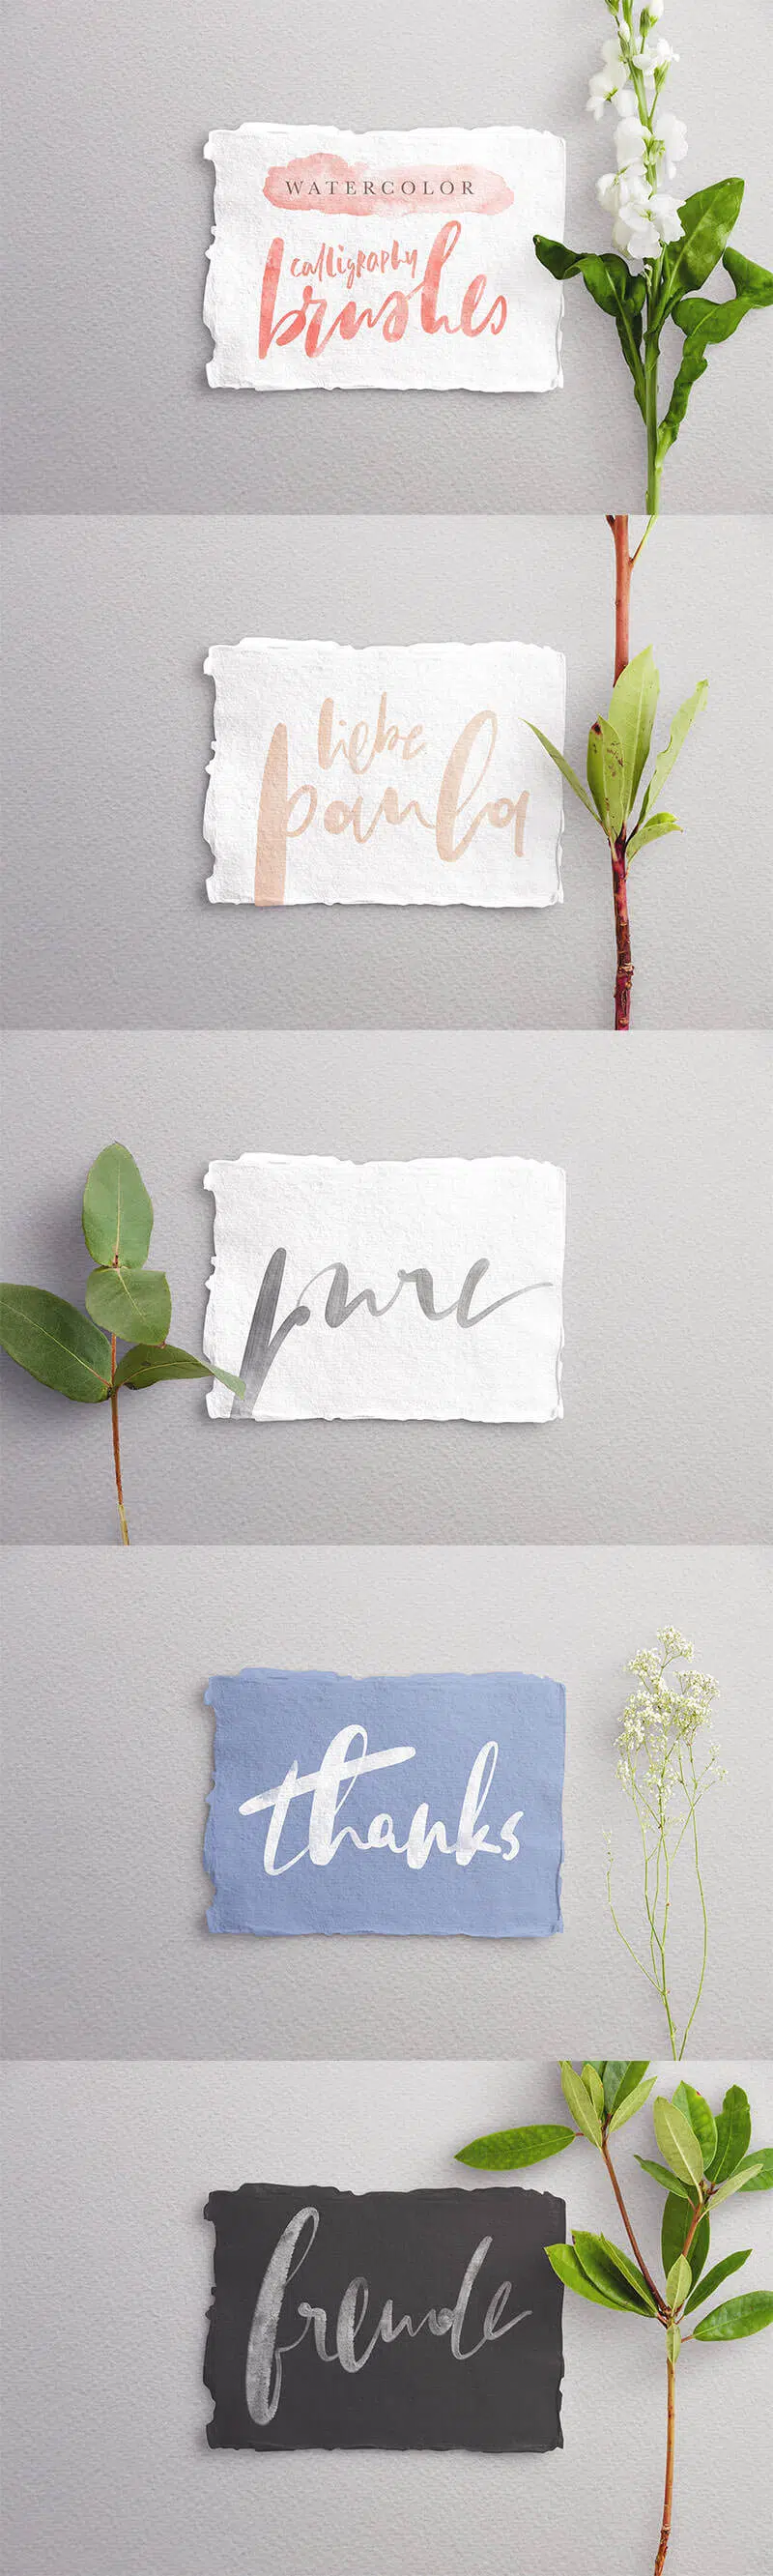 WATERCOLOR
calligraphy
brushes
liebe
paula
pure
thanks
freude